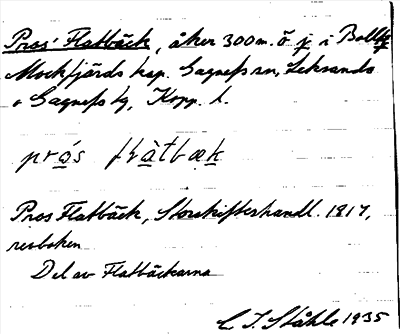 Pros Flatbäck, åker 300 m. ö j i
Mockfjärds kap. Gagnefs sn, Leksands
o Gagnefs tg, Kopp. l.
Pros Flatbäck, Storskifteshandl. 1817,
revboken
Del av Flatbäckarna
C I. Ståhle 1935